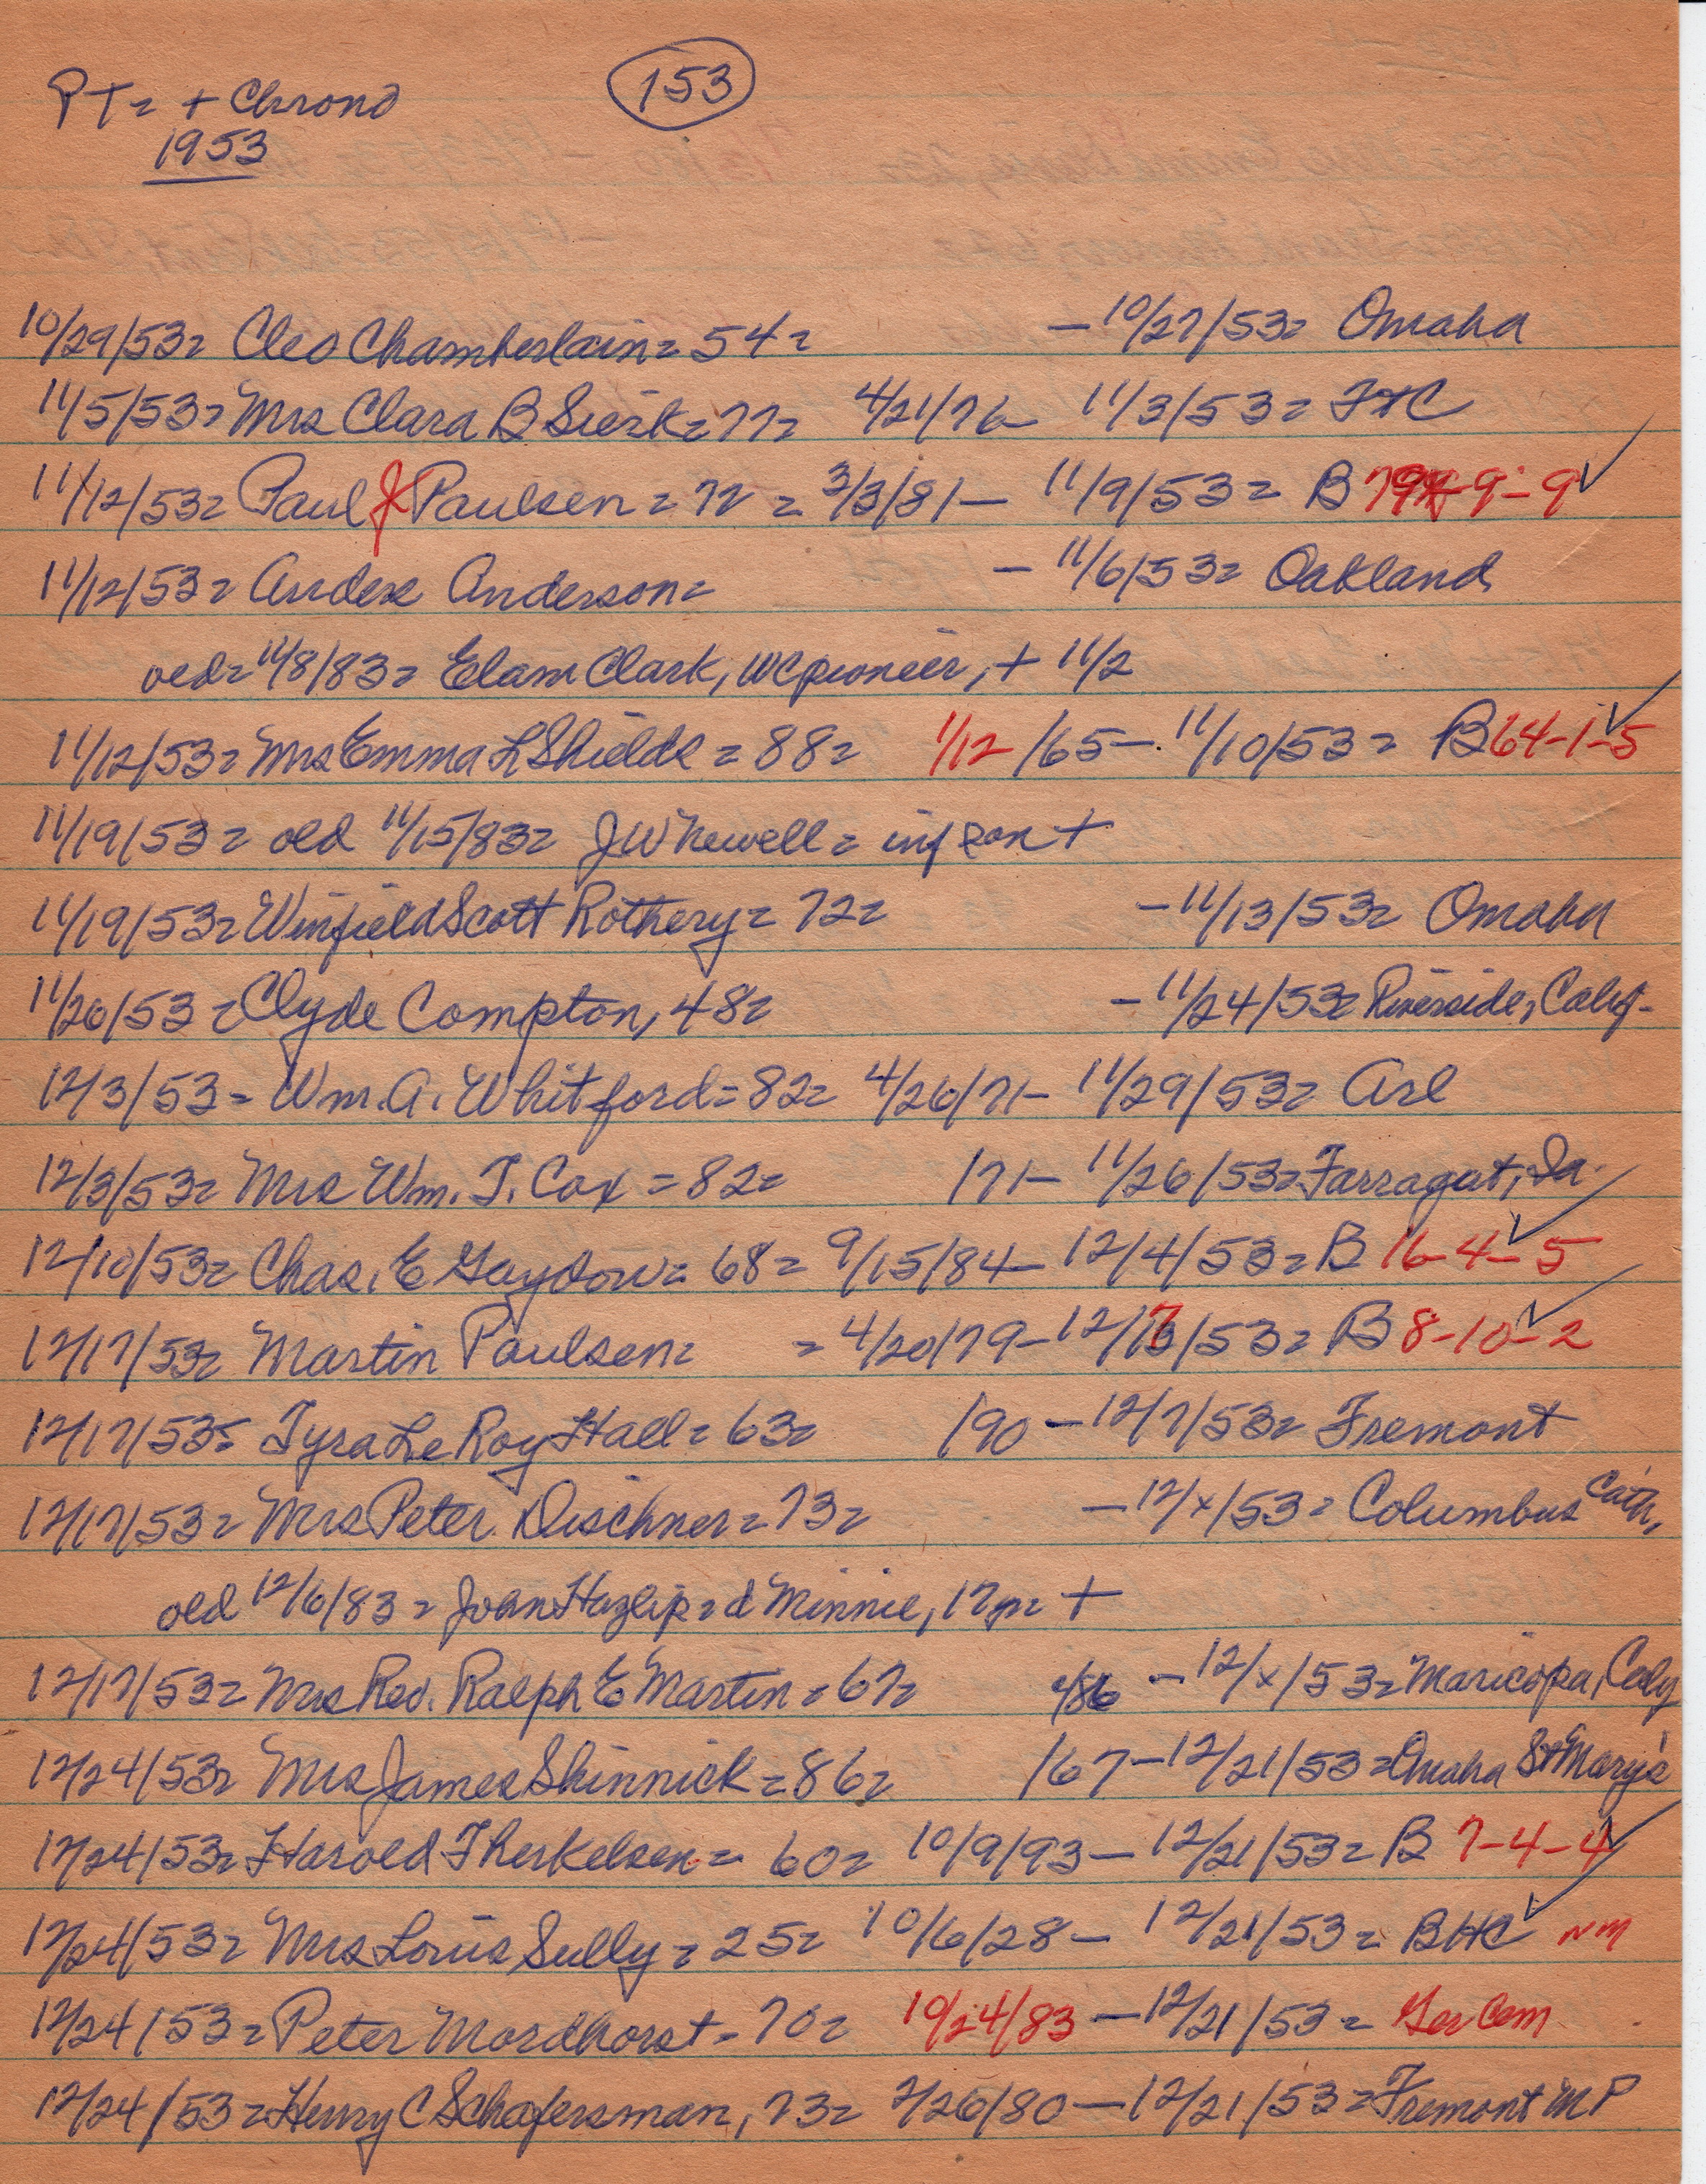 PT = + Chrono
153
1953
10/29/53 = Cleo Chamberlain = 54 = - 10/27/53 = Omaha
11/5/53 = Mrs Clara B Sierk = 77 = 4/21/76 - 11/3/53 =
11/12/53 = Paul J Paulsen = 72 = 3/3/81 - 11/9/53 = B 79 - 9 - 9 ✓
11/12/53 = Anderson = - 11/6/53 = Oakland
old = 11/8/83 = Elam Clark, WC pioneer, + 11/2
11/12/53 = Mrs Emma L Shields = 88 = 1/12/65 - 11/10/53 = B 64-1-5 ✓
11/19/53 = old 11/15/83 = J W Newell = inf son +
11/19/53 = Winfield Scott Rothery = 72 = - 11/13/53 = Omaha
11/26/53 = Clyde Compton, 48 = - 11/24/53 = Riverside, Calif -
12/3/53 = Wm. A. Whitford = 82 = 4/26/71 - 11/29/53 = Arl
12/3/53 = Mrs Wm. T. Cox = 82 = /71 - 11/26/53 = Farragut, Ia.
12/10/53 = Chas. E Gaydou = 68 = 9/15/84 - 12/4/53 = B 16-4-5 ✓
12/17/53 = Martin Paulsen = = 4/20/79 - 12/13/53 = B 8-10-2 ✓
12/17/53 = Tyra Le Roy Hall = 63 = /90 - 12/7/53 = Fremont
12/17/53 = Mrs Peter Dischner = 73 = - 12/x/53 = Columbus Cath,
old 12/6/83 = John Hazlip = d Minnie, 17 yr = +
12/17/53 = Mrs Rev. Ralph E Martin = 67 = /86 - 12/x/53 = Maricopa, Calif
12/24/53 = Mrs James Shinnick = 86 = /67 - 12/21/53 = Omaha St Mary's
12/24/53 = Harold Therkelsen = 60 = 10/9/93 - 12/21/53 = B 7-4-4 ✓
12/24/53 = Mrs Louis Sully = 25 = 10/6/28 - 12/21/53 = BHC ✓ nm
12/24/53 = Peter Mordhorst = 70 = 10/24/83 - 12/21/53 = Ger Cem
12/24/53 = Henry C Schafersman, 73 = 2/26/80 - 12/21/53 = Fremont MP